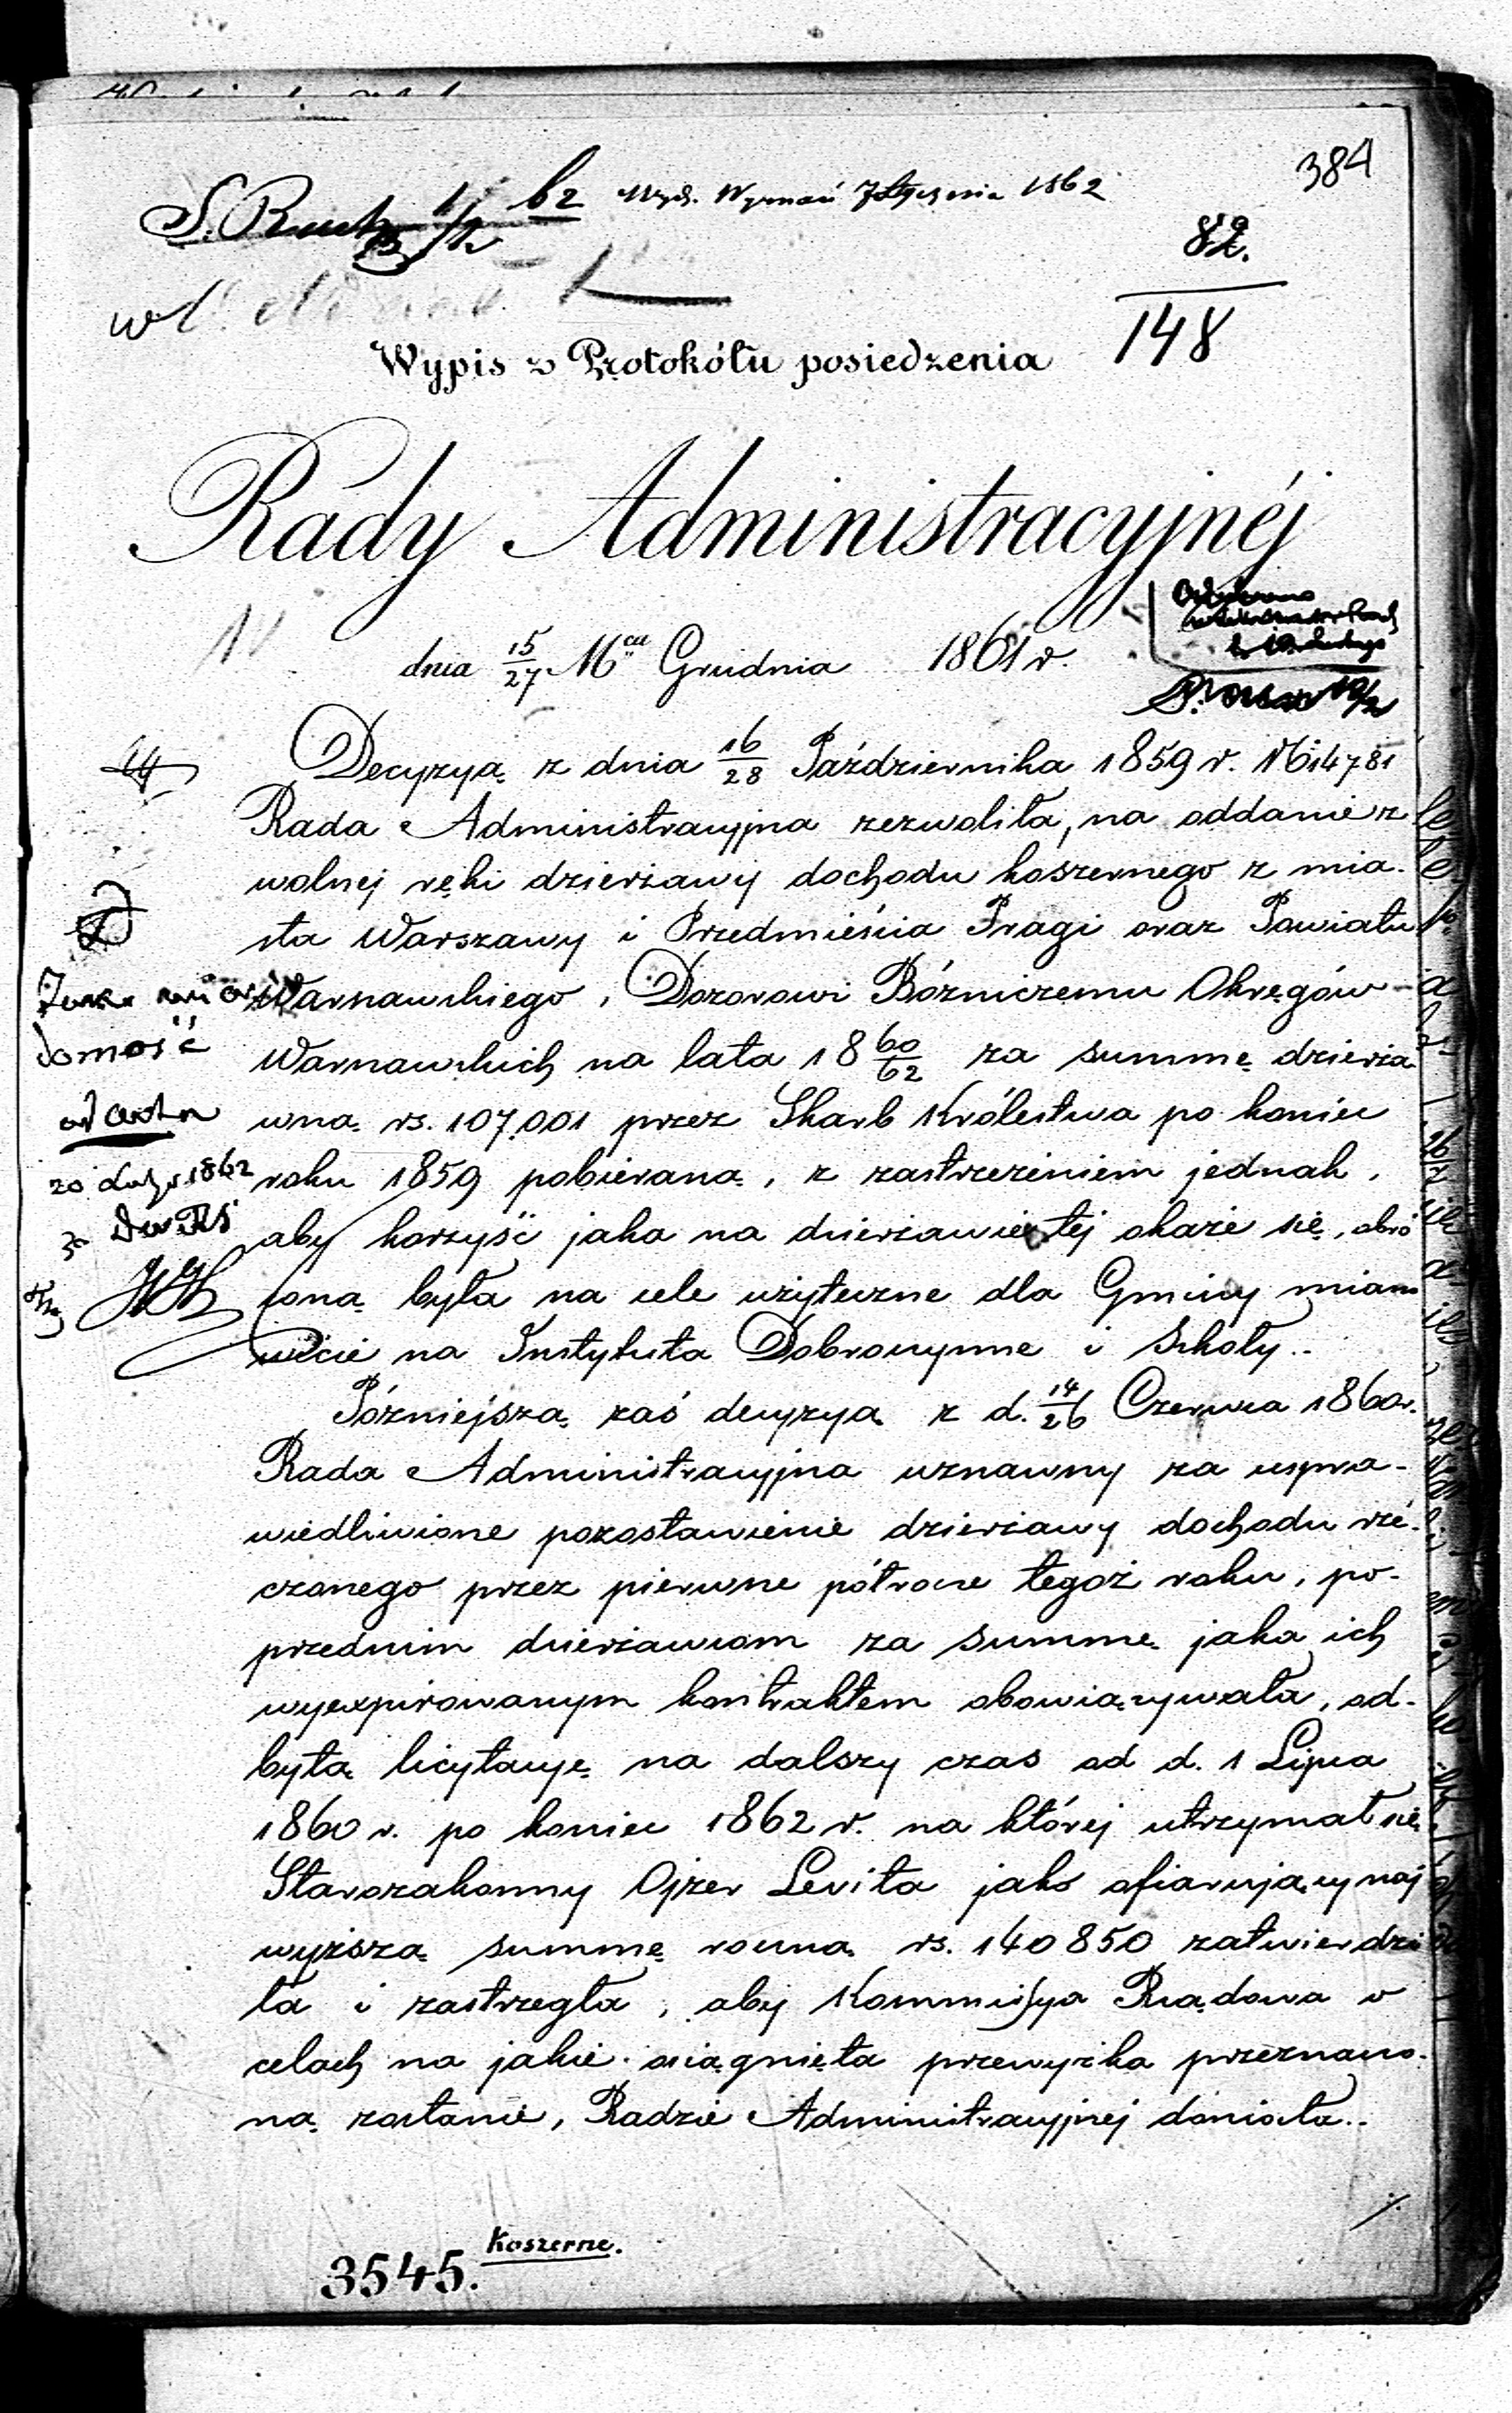 384
S. Ruck
62
Wyd. Wyznań 7 Stycznia 1862
82.
148
Wypis z Protokółu posiedzenia
Rady Administracyjnéj
dnia 15/27 Mca Grudnia 1861 r.
Decyzyą z dnia 16/28 Października 1859 r. No 14781
Rada Administracyjna zezwoliła, na oddanie z
wolnej ręki dzierżawy dochodu koszernego z mia-
sta Warszawy i Przedmieścia Pragi oraz Powiatu
Warszawskiego, Dozorowi Bóżniczemu Okręgów
Warszawskich na lata 18 60/62 za summę dzierża
wną rs. 107,001 przez Skarb Królestwa po koniec
roku 1859 pobieraną, z zastrzeżeniem jednak,
aby korzyść jaka na dzierżawie tej okaże się, obró
coną była na cele użyteczne dla Gminy miano
wicie na Instytuta Dobroczynne i Szkoły..
Późniejszą zaś decyzyą z d. 14/26 Czerwca 1860 r.
Rada Administracyjna uznawszy za uspra-
wiedliwione pozostawienie dzierżawy dochodu rze-
czonego przez pierwsze półrocze tegoż roku, po-
przednim dzierżawcom za summę jaka ich
wyexpirowanym kontraktem obowiązywała, od-
bytą licytacyę na dalszy czas od d. 1 Lipca
1860 r. po koniec 1862 r. na której utrzymał się
Starozakonny Ojzer Levita jako ofiarujący naj
wyższą summę roczną rs. 140850 zatwierdzi
ła i zastrzegła, aby Kommissya Rządowa o
celach na jakie osiągnięta przewyżka przeznaczo-
ną zostanie, Radzie Administracyjnej doniosła..
domość
20 1862
Koszerne.
3545.